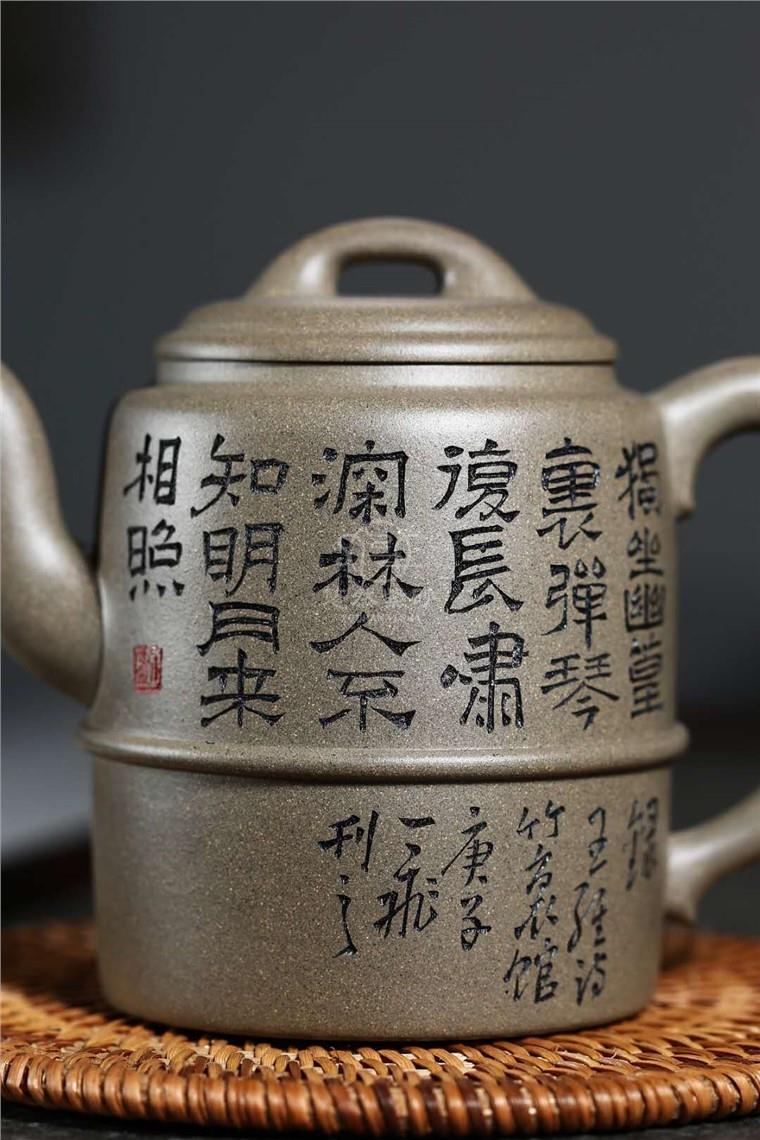 獨坐幽篁
裏彈琴
復長嘯
深林人不
知明月来
相照
録
王維詩
竹裏館
庚子
飛
刊之